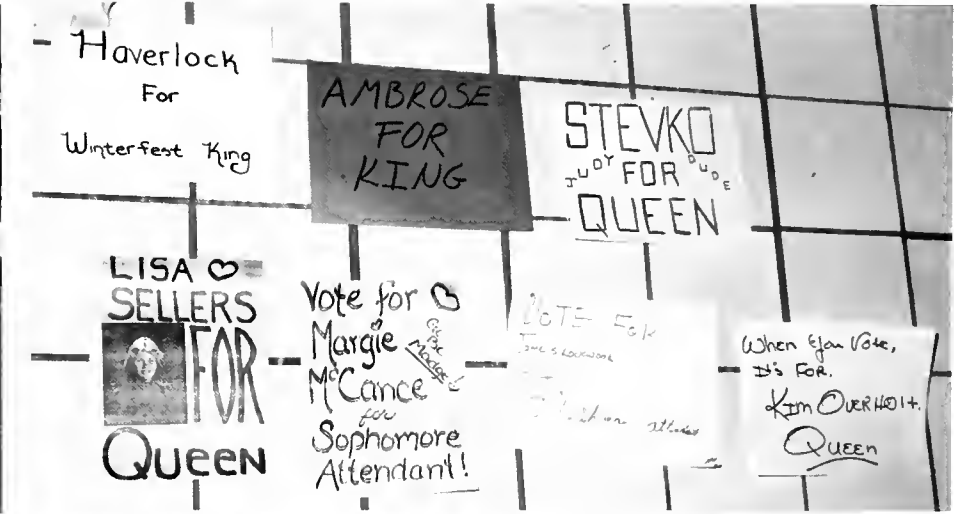 Haverlock
For
Winterfest King
AMBROSE
FOR
KING
STEVKO
JUDY FOR DUDE
QUEEN
LISA
SELLERS
FOR
QUEEN
Vote for
Margie
McCance
for
Sophomore
Attendant!
VOTE FOR
When You Vote,
It's FOR.
KIM OVERHOLT.
QUEEN